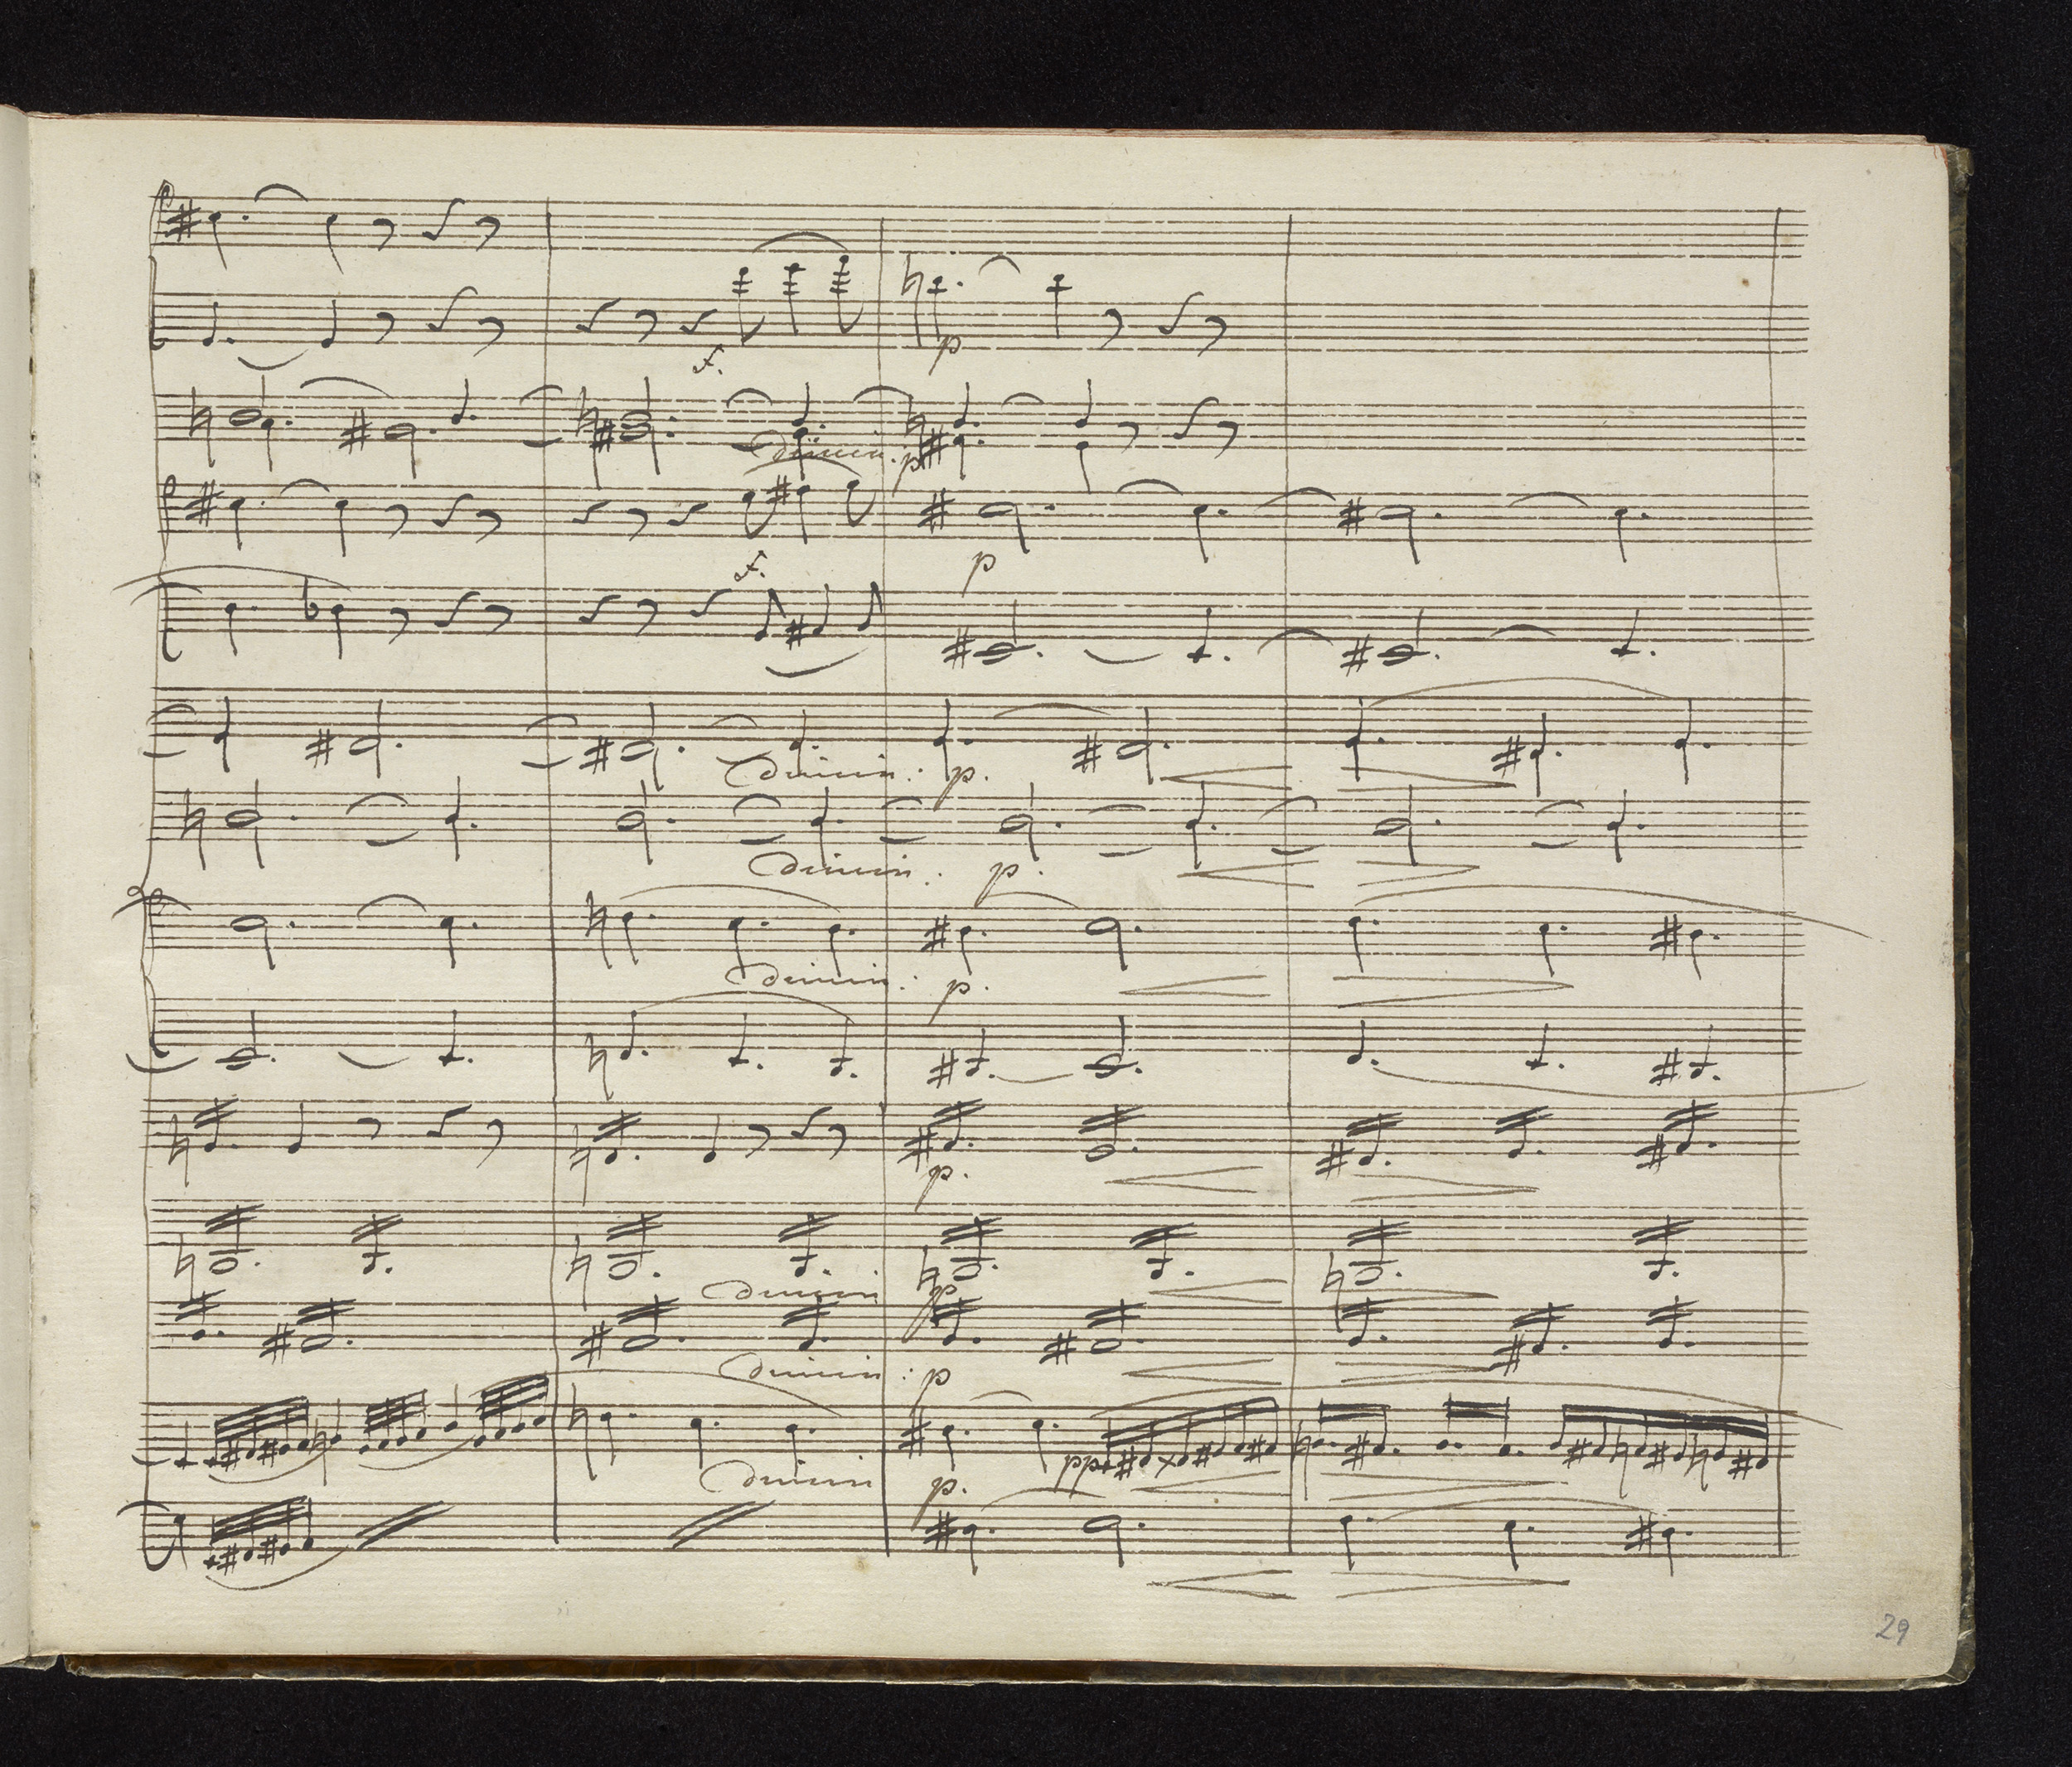 f. p
dimin. p
f. p
dimin: p.
dimin: p.
dimin: p.
p.
dimin p
dimin: p
pp
dimin p.
29